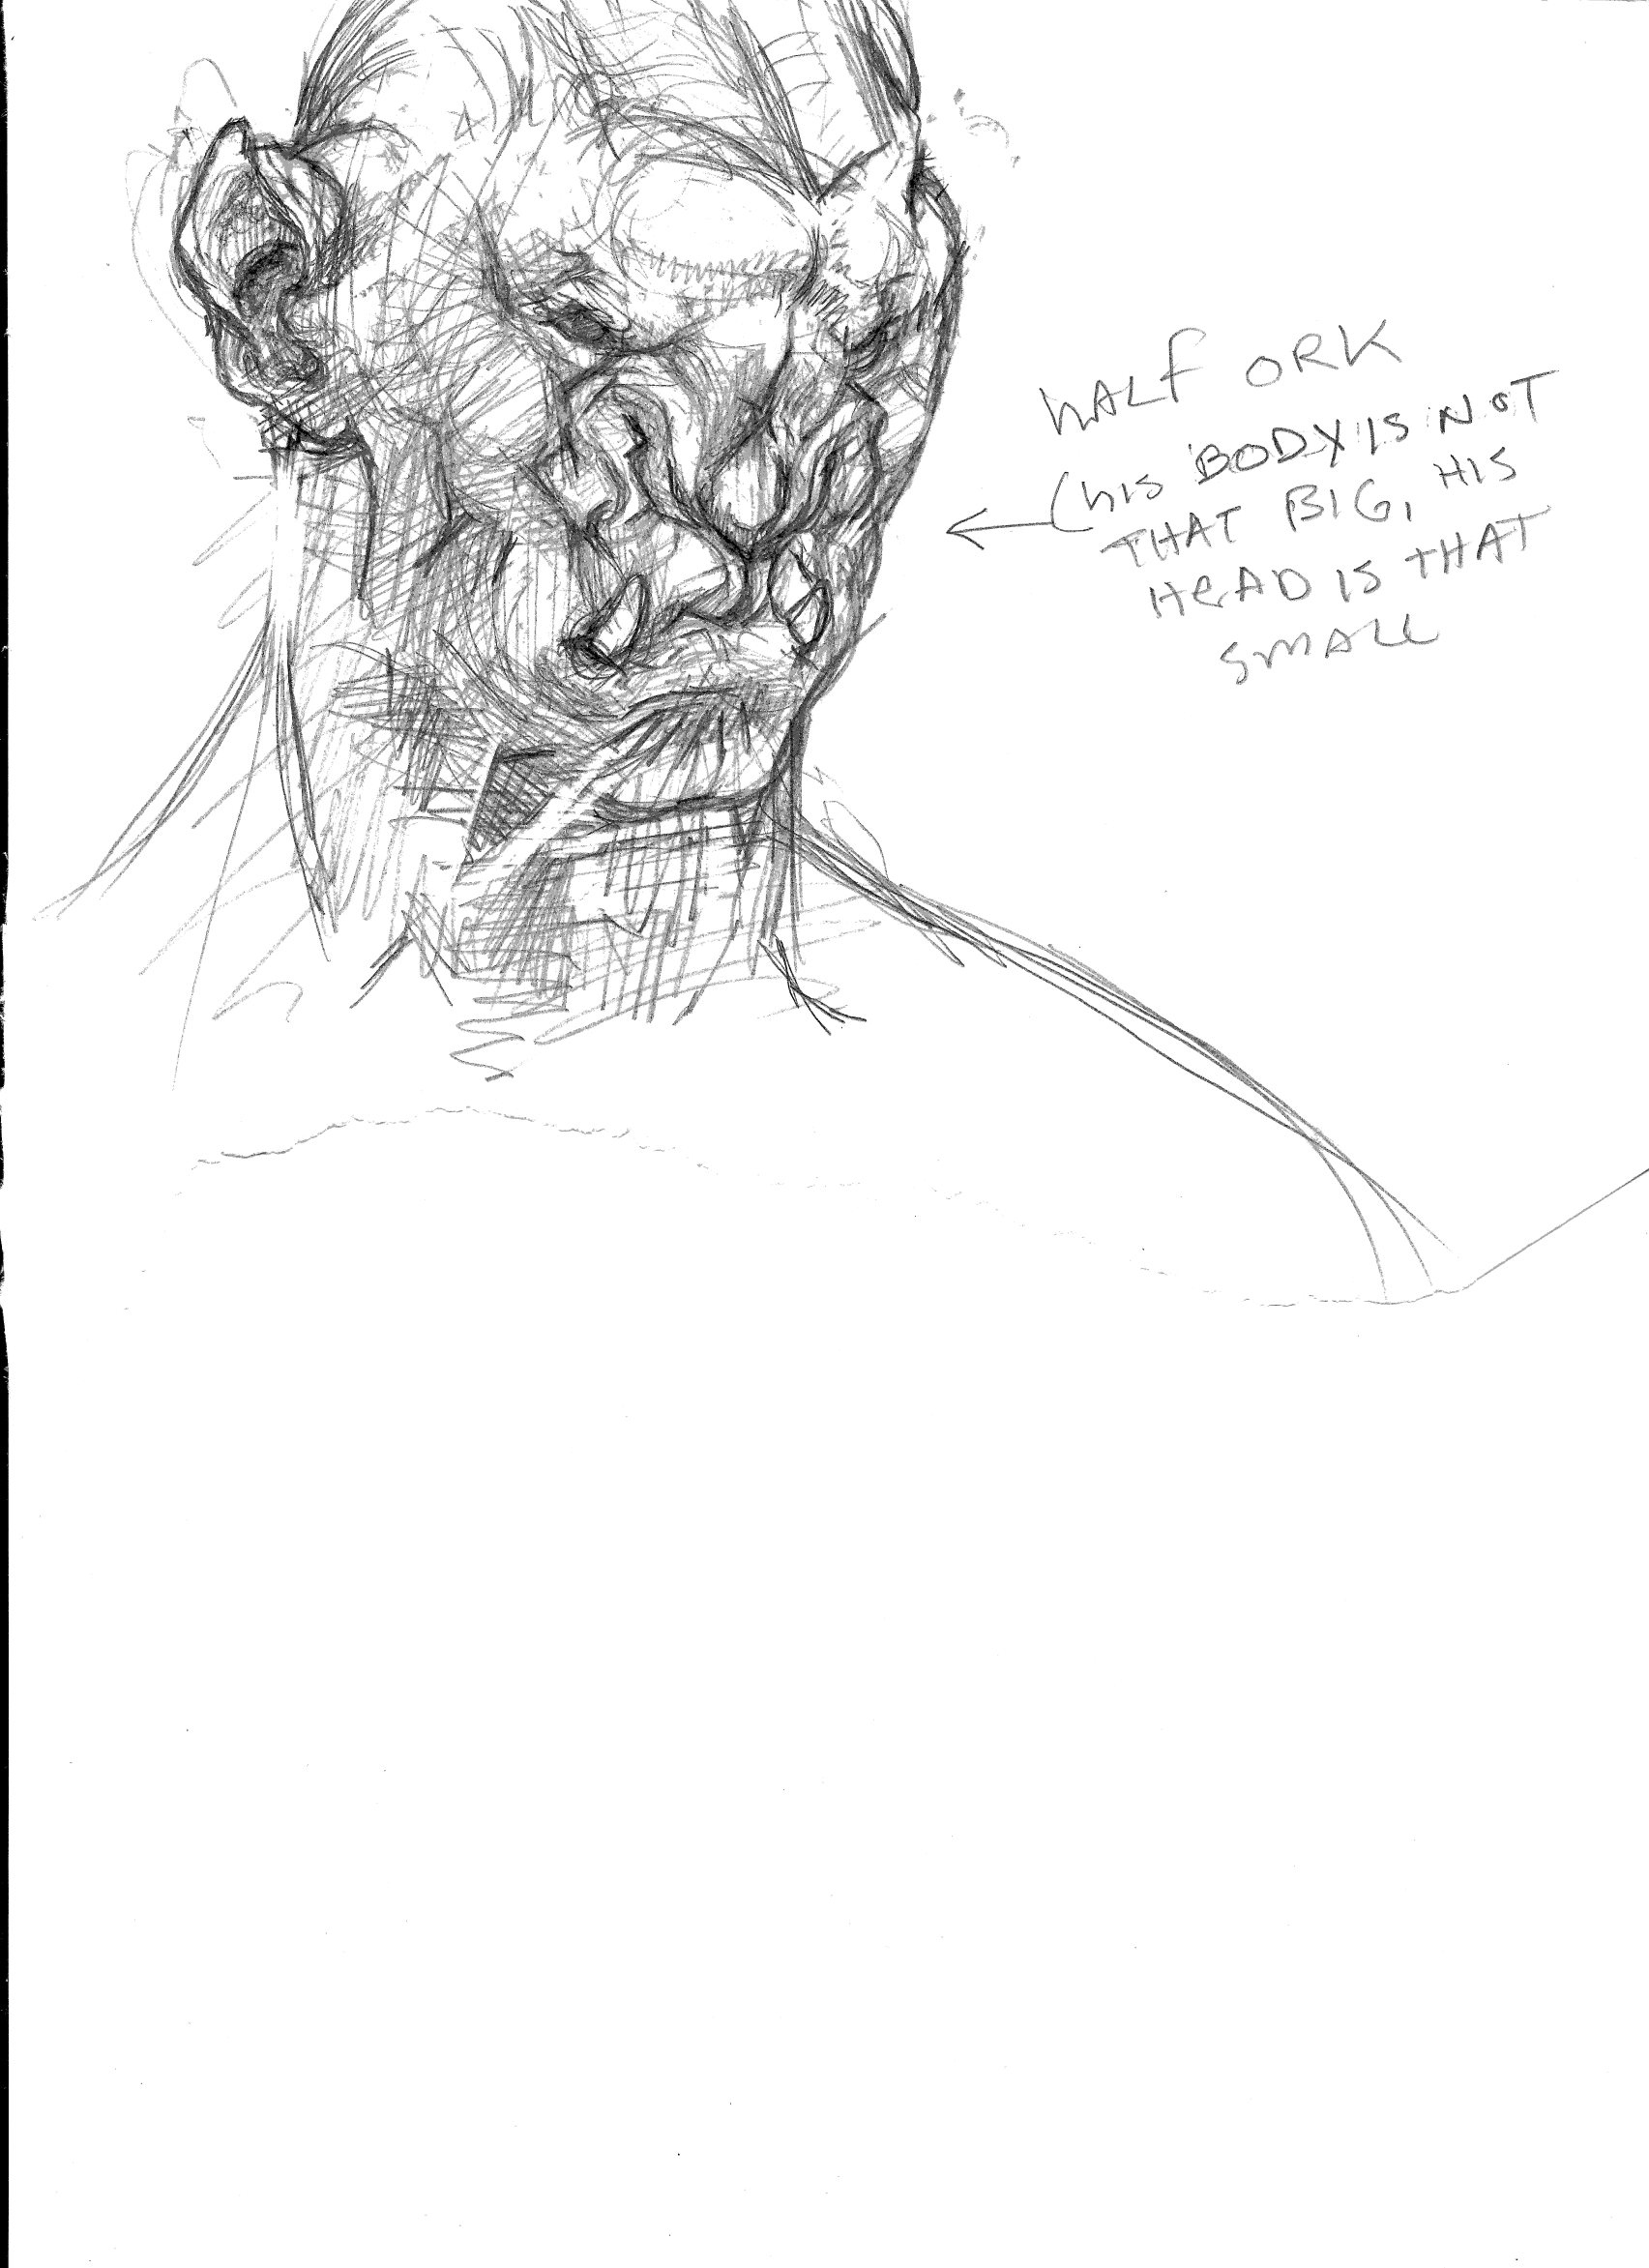 hALF ORK
(his BODY IS NOT
THAT BIG, HIS
HeAD IS THAT
SMALL